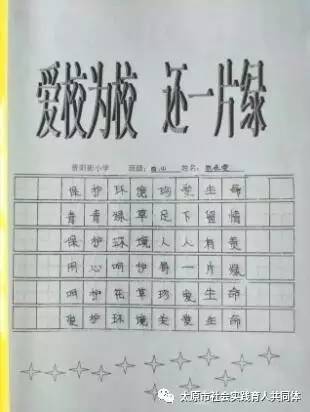 爱校为校 还一片绿
晋阳街小学 班级: 姓名:
保护环境珍爱生命
青青绿草足下留情
保护环境人人有责
用心呵护每一片绿
呵护花草珍爱生命
爱护环境关爱生命
太原市社会实践育人共同体